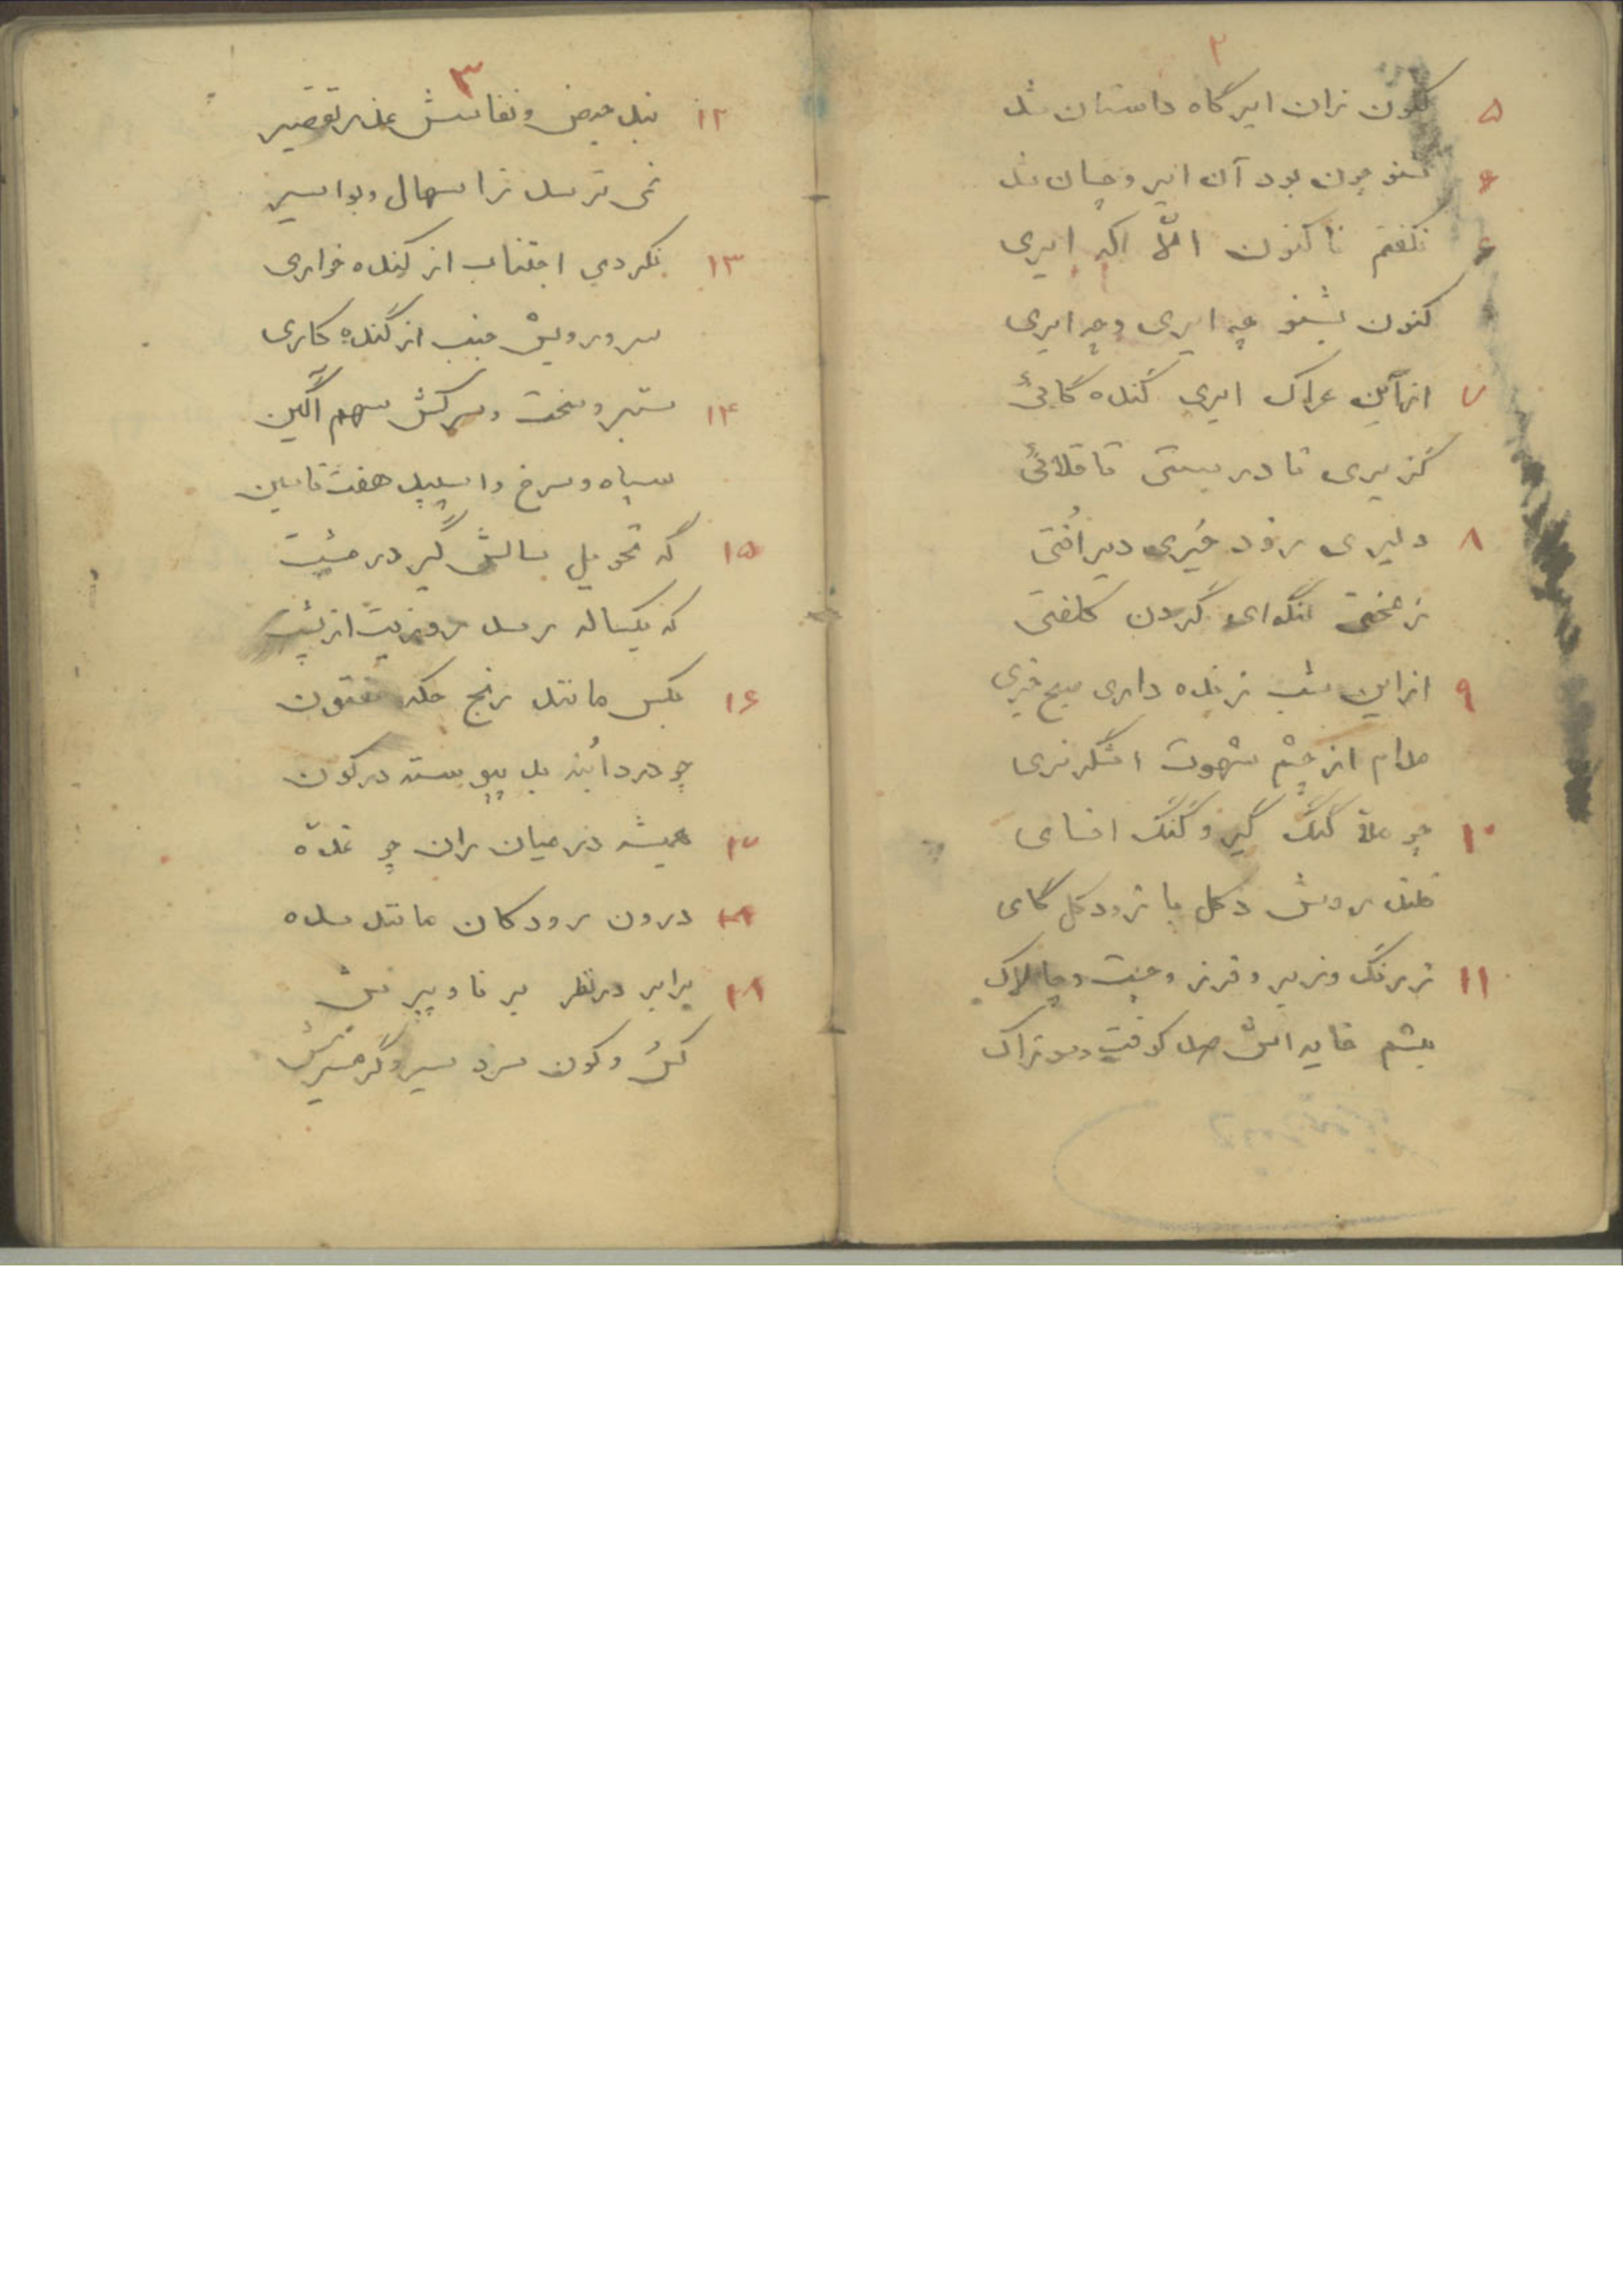 ۲
۵ کنون زان ایر گاه داستان شد
۶ شنو چون بود آن ایر و چسان شد
۶ نگفتم تا کنون الّا اکه ایری
کنون بشنو چه ایری وچه ایری
۷ ایری گنده گائی
گزیری نا درستی ناقلائی
۸ دلیری زود خیزی دیر اُفتی
ز گردن کلفتی
۹ ازاین شب زنده داری صبح خیزی
مدام از چشم شهوت اشگریزی
۱۰ چو ملا گنگ گیر و گنگ افسای
دکل با زود کل گای
۱۱ زرنگ وزبر و فرز و چست وچالاک
پشم خایه اش صد کوفت وسوزاک
۳
۱۲ نبد حیض و نفاسش عذر تقصیر
نمی ترسد ز اسهال و بواسیر
۱۳ نکردی اجتناب از گنده خواری
سر و رویش جنب از گنده کاری
۱۴ ستبر و سخت و سرکش سهم آگین
سیاه و سرخ و اسپید هفت
۱۵ که تحویل سالش گیر در مشت
که یکساله رسد روزیت از پشت
۱۶ بکس مانند رنج حکه مفتون
چو درد اُبنه بد پیوسته در کون
۱۷ همیشه در میان ران چو غدّه
درون رودکان مانند سده
۱۸ برابر در نظر برنا و پیرش
کس و کون سرد سیر و گرمسیرش